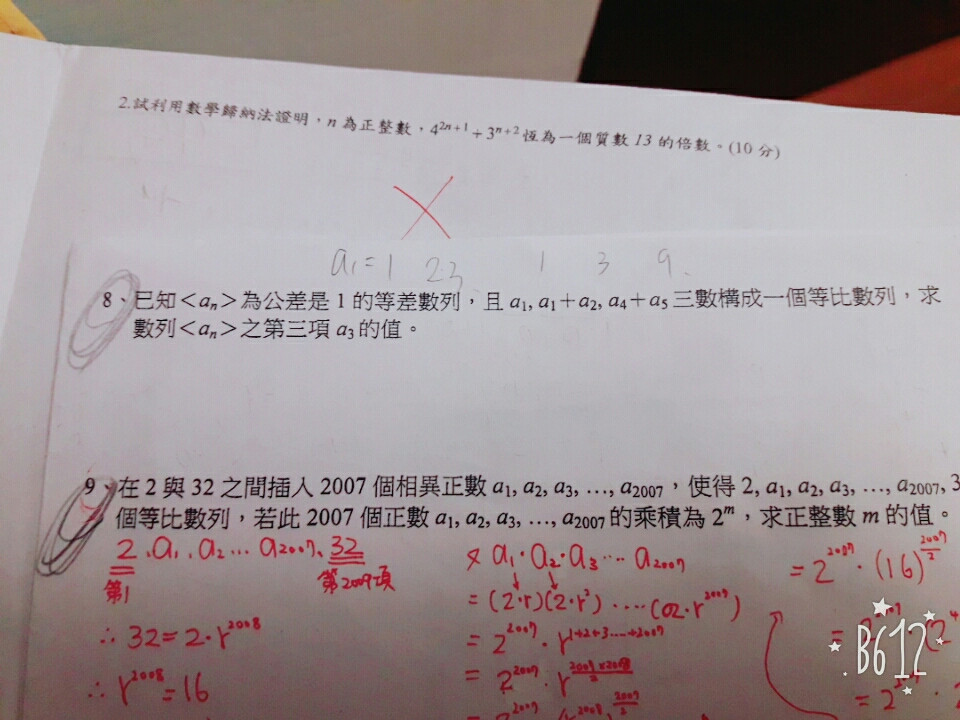 2.試利用數學歸納法證明，n 為正整數，4^{2n+1}+3^{n+2} 恆為一個質數 13 的倍數。(10 分)
a₁=1 2.3 1 3 9.
8、已知<aₙ>為公差是 1 的等差數列，且 a₁, a₁+a₂, a₄+a₅ 三數構成一個等比數列，求
數列<aₙ>之第三項 a₃ 的值。
9、在 2 與 32 之間插入 2007 個相異正數 a₁, a₂, a₃, …, a₂₀₀₇，使得 2, a₁, a₂, a₃, …, a₂₀₀₇, 3
個等比數列，若此 2007 個正數 a₁, a₂, a₃, …, a₂₀₀₇ 的乘積為 2^m，求正整數 m 的值。
2、a₁、a₂… a₂₀₀₇、32
第1 第2009項
∴ 32=2·r^{2008}
∴ r^{2008}=16
又 a₁·a₂·a₃…· a₂₀₀₇
=(2·r)(2·r²)····(2·r^{2007})
=2^{2007}·r^{1+2+3…+2007}
=2^{2007}·r^{\frac{2007×2008}{2}}
=2^{2007}·(16)^{\frac{2007}{2}}
B612